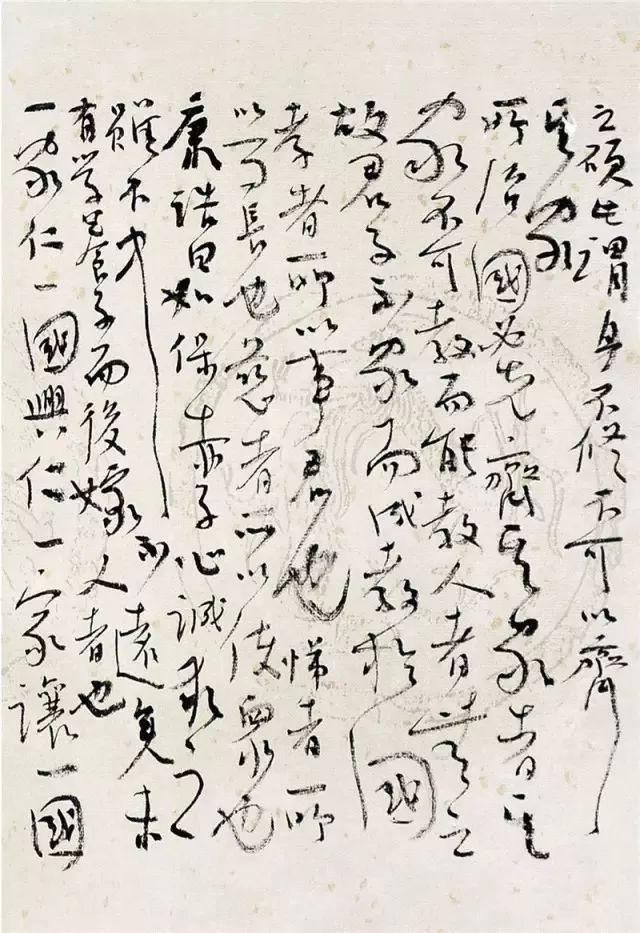 之碩此謂身不修不可以齊
其家
所治國必先齊其家者其
家不可教而能教人者無之
故君子不出家而成教於國
孝者所以事君也悌者所
以事長也慈者所以使眾也
康誥曰如保赤子心誠求之
雖不中不遠矣未
有學養子而後嫁人者也
一家仁一國興仁一家讓一國